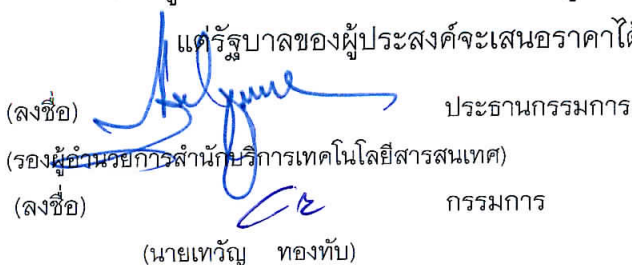 แต่รัฐบาลของผู้ประสงค์จะเสนอราคาได้
(ลงชื่อ) ประธานกรรมการ
(รองผู้อำนวยการสำนักบริการเทคโนโลยีสารสนเทศ)
(ลงชื่อ) กรรมการ
(นายเทวัญ ทองทับ)